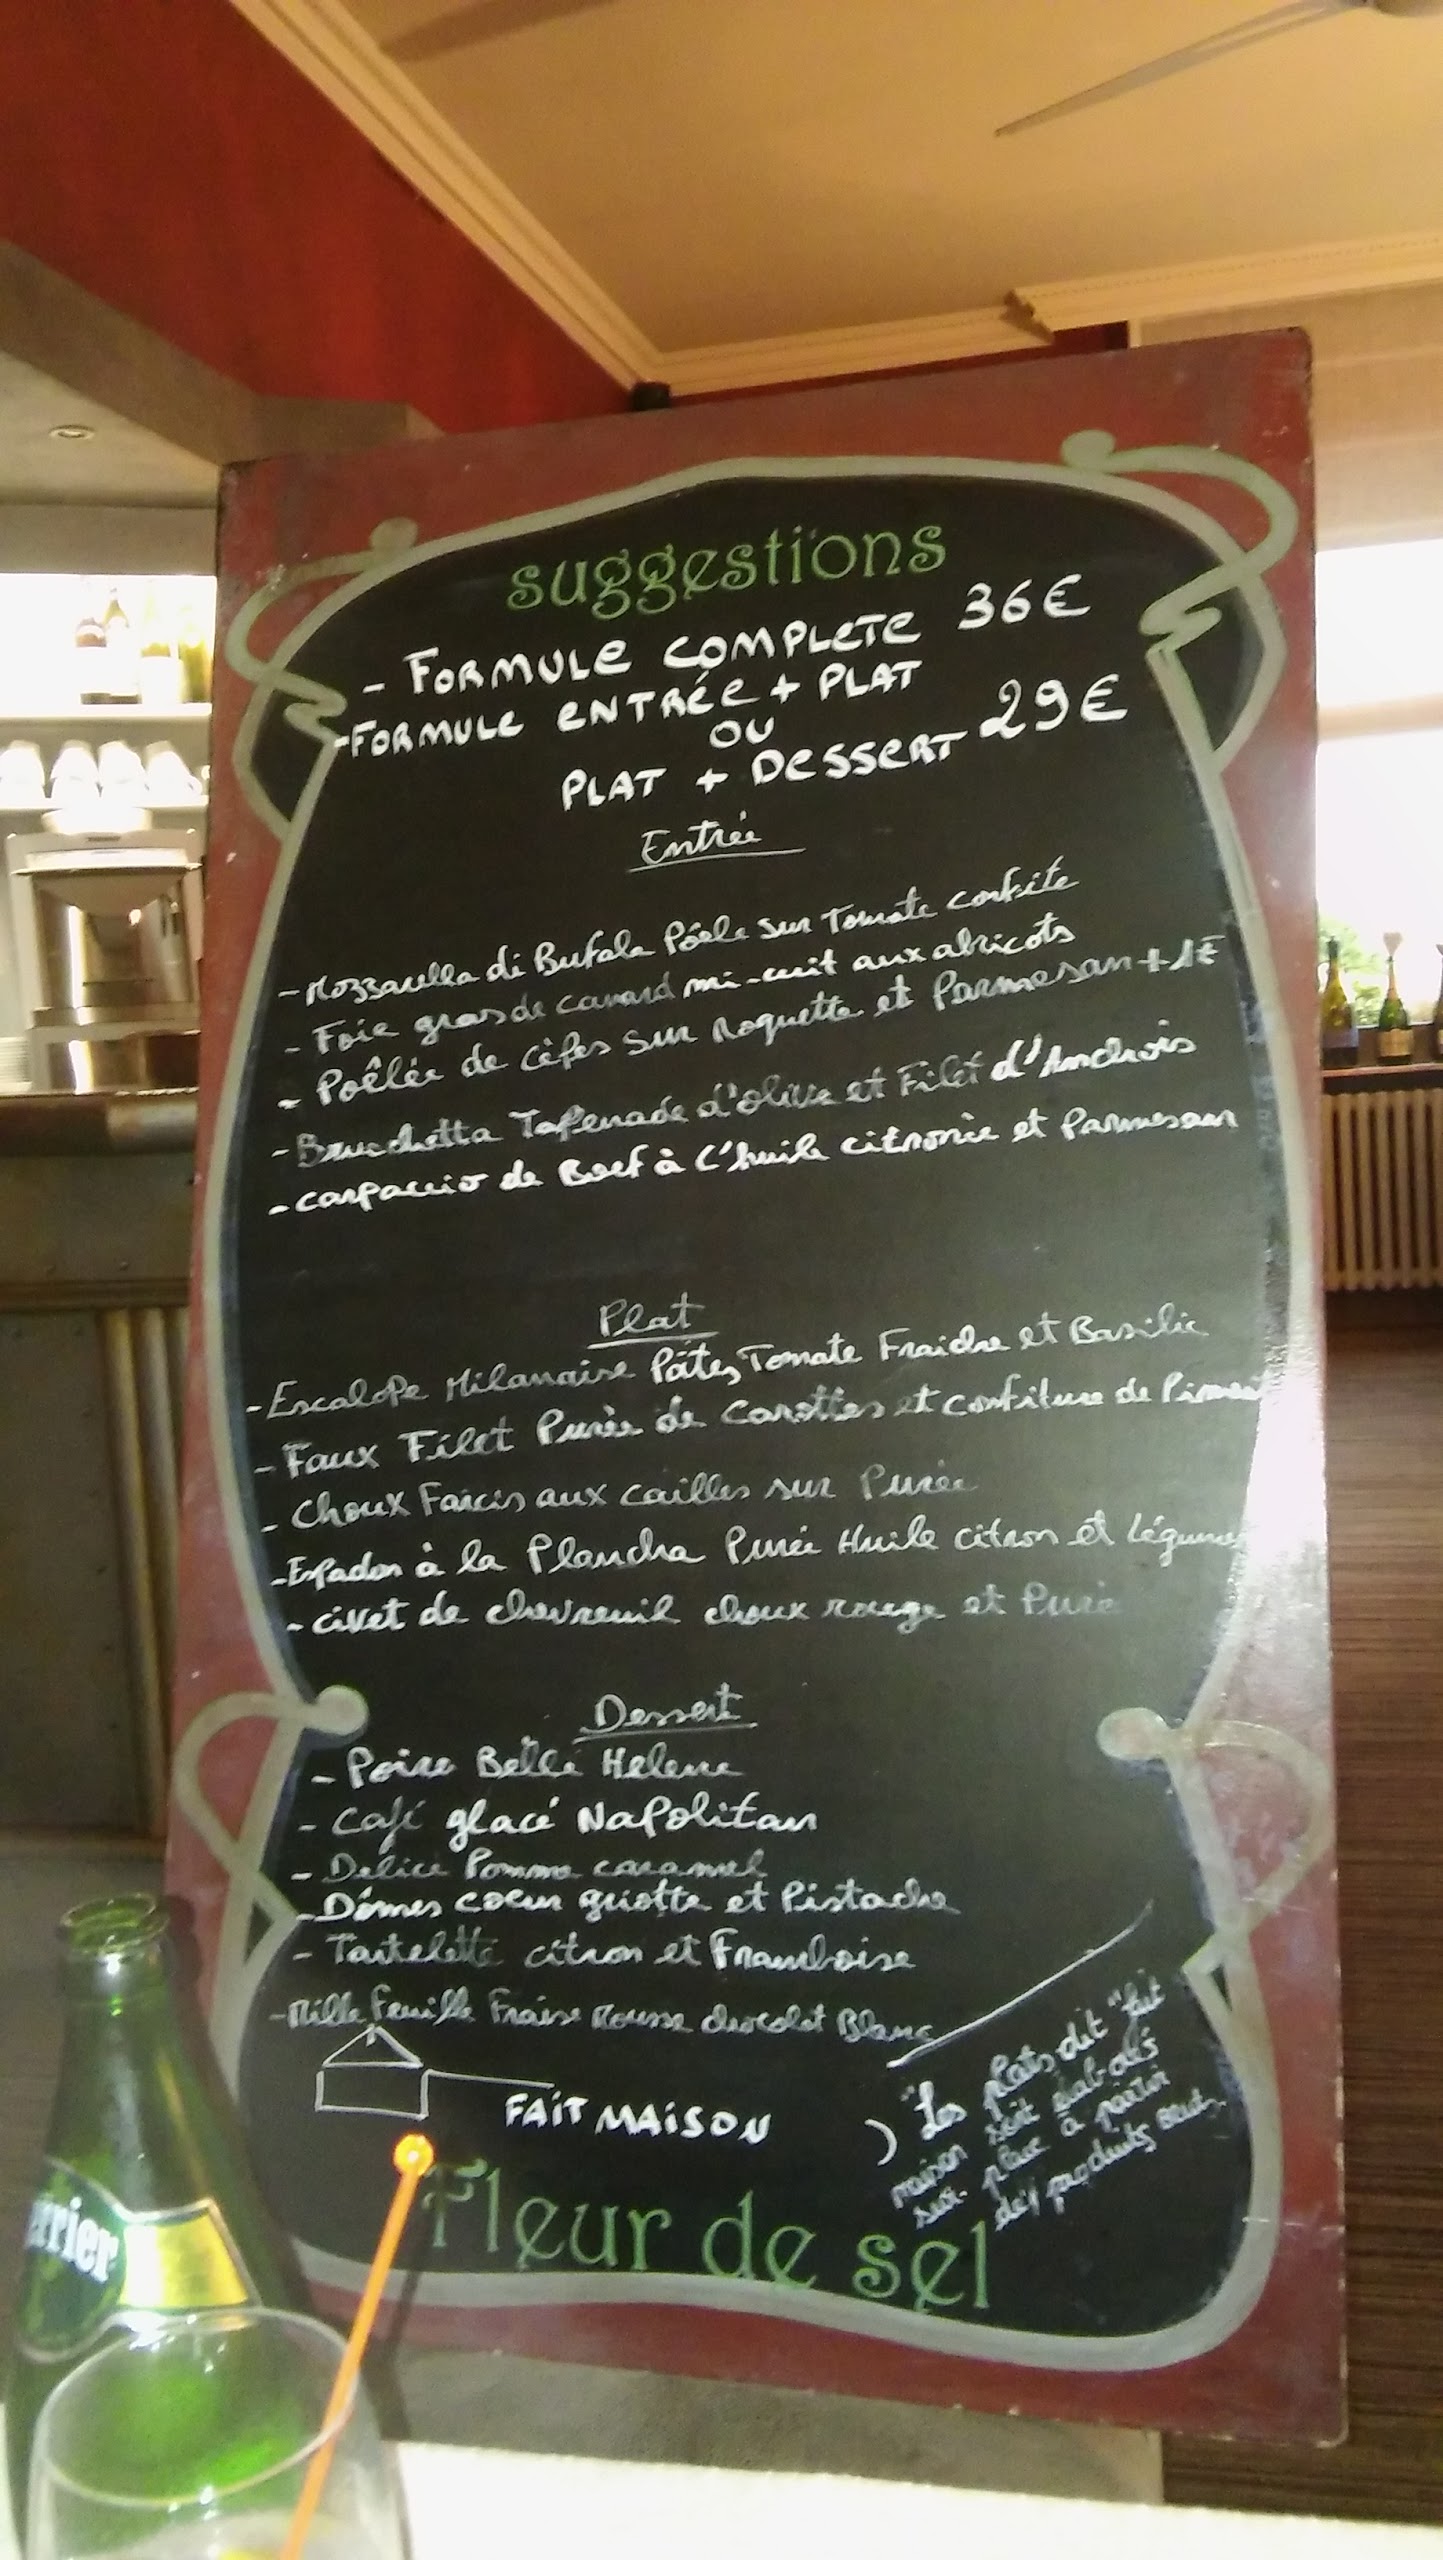 suggestions
- FORMULE COMPLETE 36€
- FORMULE ENTRÉE + PLAT
OU
PLAT + DESSERT 29€
Entrée
- Mozzarella di Bufala Pôele sur Tomate confite
- Foie gras de canard mi-cuit aux abricots
- Poêlée de cêpes sur Roquette et Parmesan + 1€
- Bruschetta Tapenade d'olive et Filet d'Anchois
- Carpaccio de Boef à l'huile citronée et Parmesan
Plat
- Escalope Milanaise Pâtes, Tomate Fraiche et Basilic
- Faux Filet Purée de Carottes et confiture de Piment
- Choux Farcis aux cailles sur Purée
- Espadon à la Plancha Purée Huile citron et Légumes
- civet de chevreuil choux rouge et Purée
Dessert
- Poire Belle Helene
- Café glacé Napolitan
- Delice Pomme caramel
- Dômes coeur griotte et Pistache
- Tartelette citron et Framboise
- Mille Feuille Fraise Mousse chocolat Blanc
FAIT MAISON
"Les plats dit "fait
maison sont élaborés
sur place à partir
de produits
Fleur de sel
Perrier